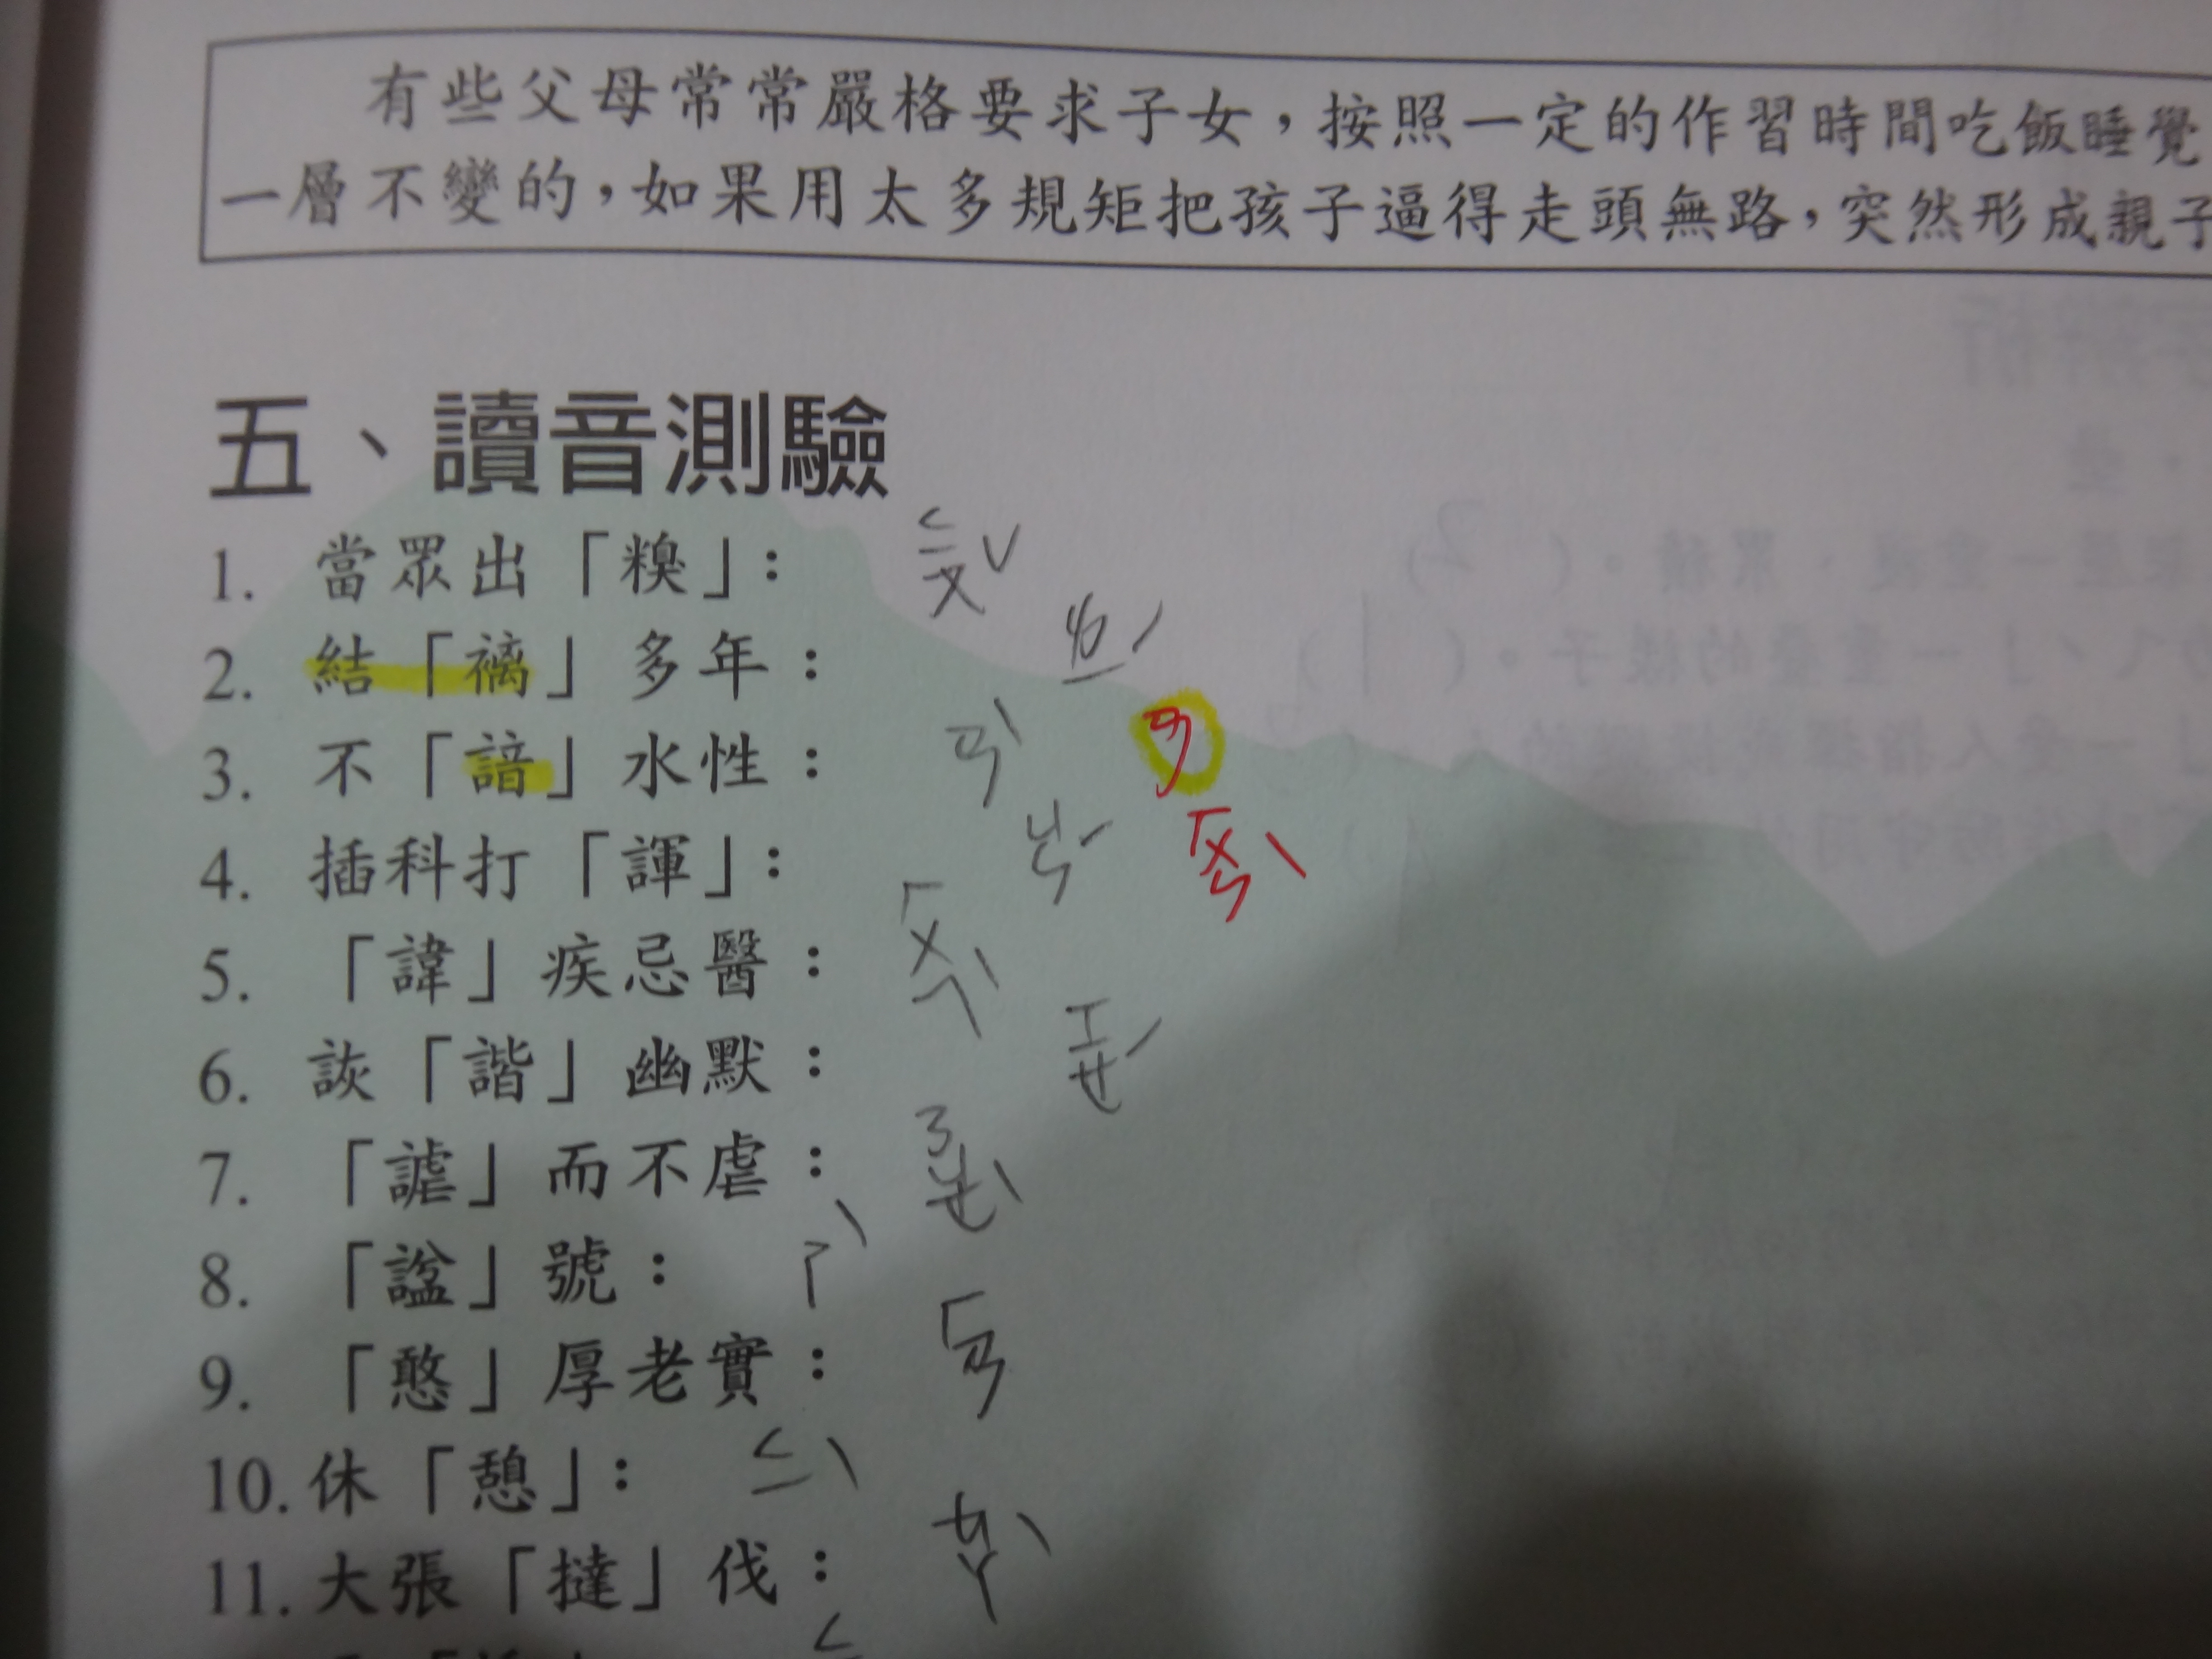 有些父母常常嚴格要求子女，按照一定的作習時間吃飯睡覺
一層不變的，如果用太多規矩把孩子逼得走頭無路，突然形成親子
五、讀音測驗
1. 當眾出「糗」： ㄑㄧㄡˇ
2. 結「褵」多年： ㄌㄧˊ
3. 不「諳」水性： ㄢˋ ㄢ
4. 插科打「諢」： ㄐㄣˊ ㄏㄨㄣˋ
5. 「諱」疾忌醫： ㄏㄨㄟˋ
6. 詼「諧」幽默： ㄒㄧㄝˊ
7. 「謔」而不虐： ㄋㄩㄝˋ
8. 「諡」號： ㄕˋ
9. 「憨」厚老實： ㄏㄢ
10. 休「憩」： ㄑㄧˋ
11. 大張「撻」伐： ㄊㄚˋ